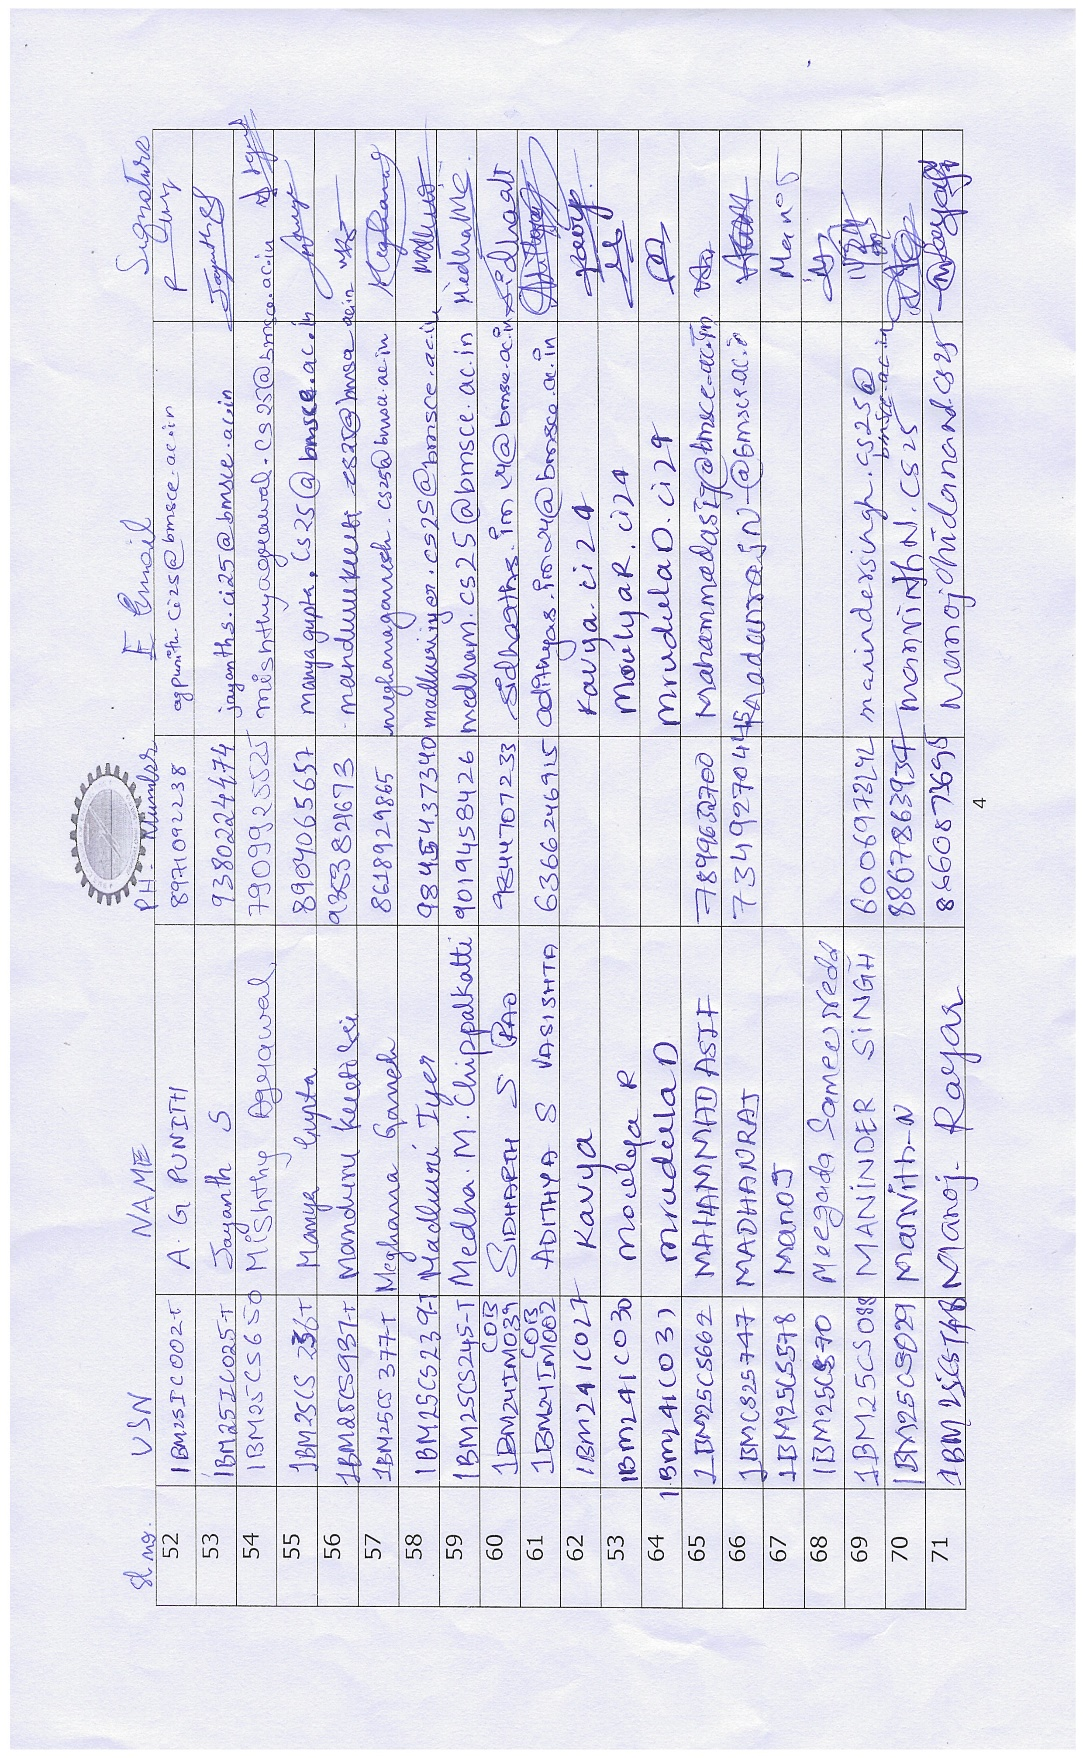 Sl no. USN NAME PH-Number E Email Signature
52 1BM25IC002-t A. G PUNITH 8971092238 agpunith.ci25@bmsce.ac.in
53 1BM25IC025-T Jayanth S 9380224474 jayanths.ci25@bmsce.ac.in Jayanth S
54 1BM25CS650 Mishthy Agrawal 7909925525 mishthyagrawal.cs25@bmsce.ac.in
55 1BM25CS 236-T Manya Gupta 8904065657 manyagupta.cs25@bmsce.ac.in
56 1BM25CS937-t Manduru Keerti Sri 9353821673 cs25@bmsce.ac.in
57 1BM25CS377-T Meghana Ganesh 8618929865 meghanaganesh.cs25@bmsce.ac.in Meghana
58 1BM25CS239-T Madhuri Iyer 9845437340 madhuriiyer.cs25@bmsce.ac.in Madhuri
59 1BM25CS245-T Medha. M. Chippalkatti 9019458426 medham.cs25@bmsce.ac.in Medha MC
60 1BM24IM039 COB SIDHARTH S RAO 9844707233 sidharths.im24@bmsce.ac.in
61 1BM24IM002 COB ADITHYA S VASISHTA 6366246915 adithyas.im24@bmsce.ac.in
62 1BM24IC027 Kavya Kavya.ci24 Kavya
53 1BM24IC030 Moulya R MoulyaR.ci24
64 1BM24IC031 Mrudula D MrudulaD.ci24
65 1BM25CS662 MAHAMMAD ASIF 7899632700
66 1BMCS25747 MADHANRAJ
67 1BM25CS578 Manoj
68 1BM25CS570 Meegada Sameer
69 1BM25CS088 MANINDER SINGH 6006973292 manindersingh.cs25@
bmsce.ac.in
70 1BM25CS029 Manvith-N 8867863934 manvithN.cs25
71 Manoj- Rayar 8660872695
4